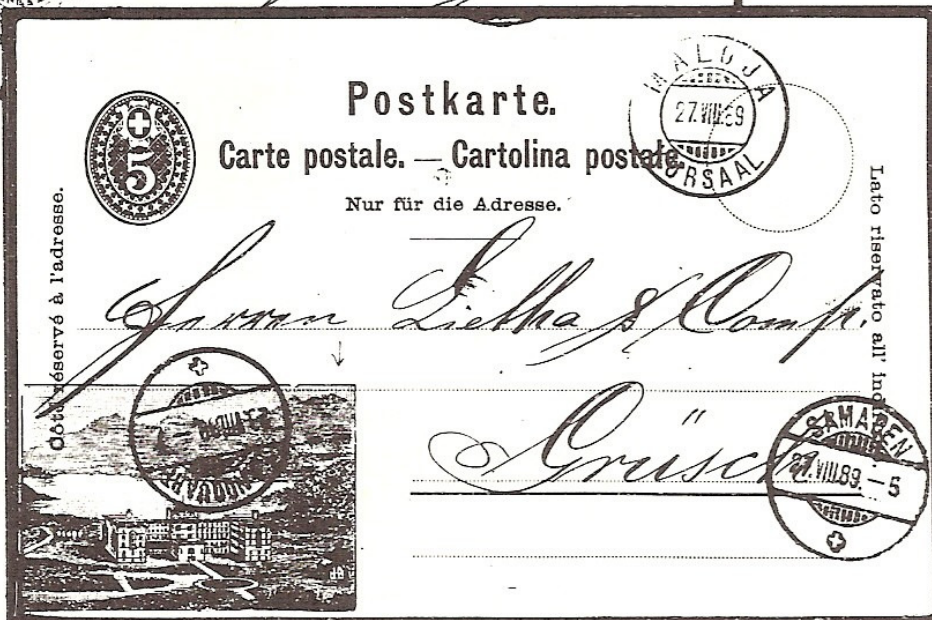 Postkarte.
Carte postale. — Cartolina postale.
Nur für die Adresse.
5
MALOJA
27.VIII.89
KURSAAL
Côté réservé à l'adresse.
Lato riservato all'
Herren Lietha & Comp.
Grüsch
SAMADEN
27.VIII.89.-5